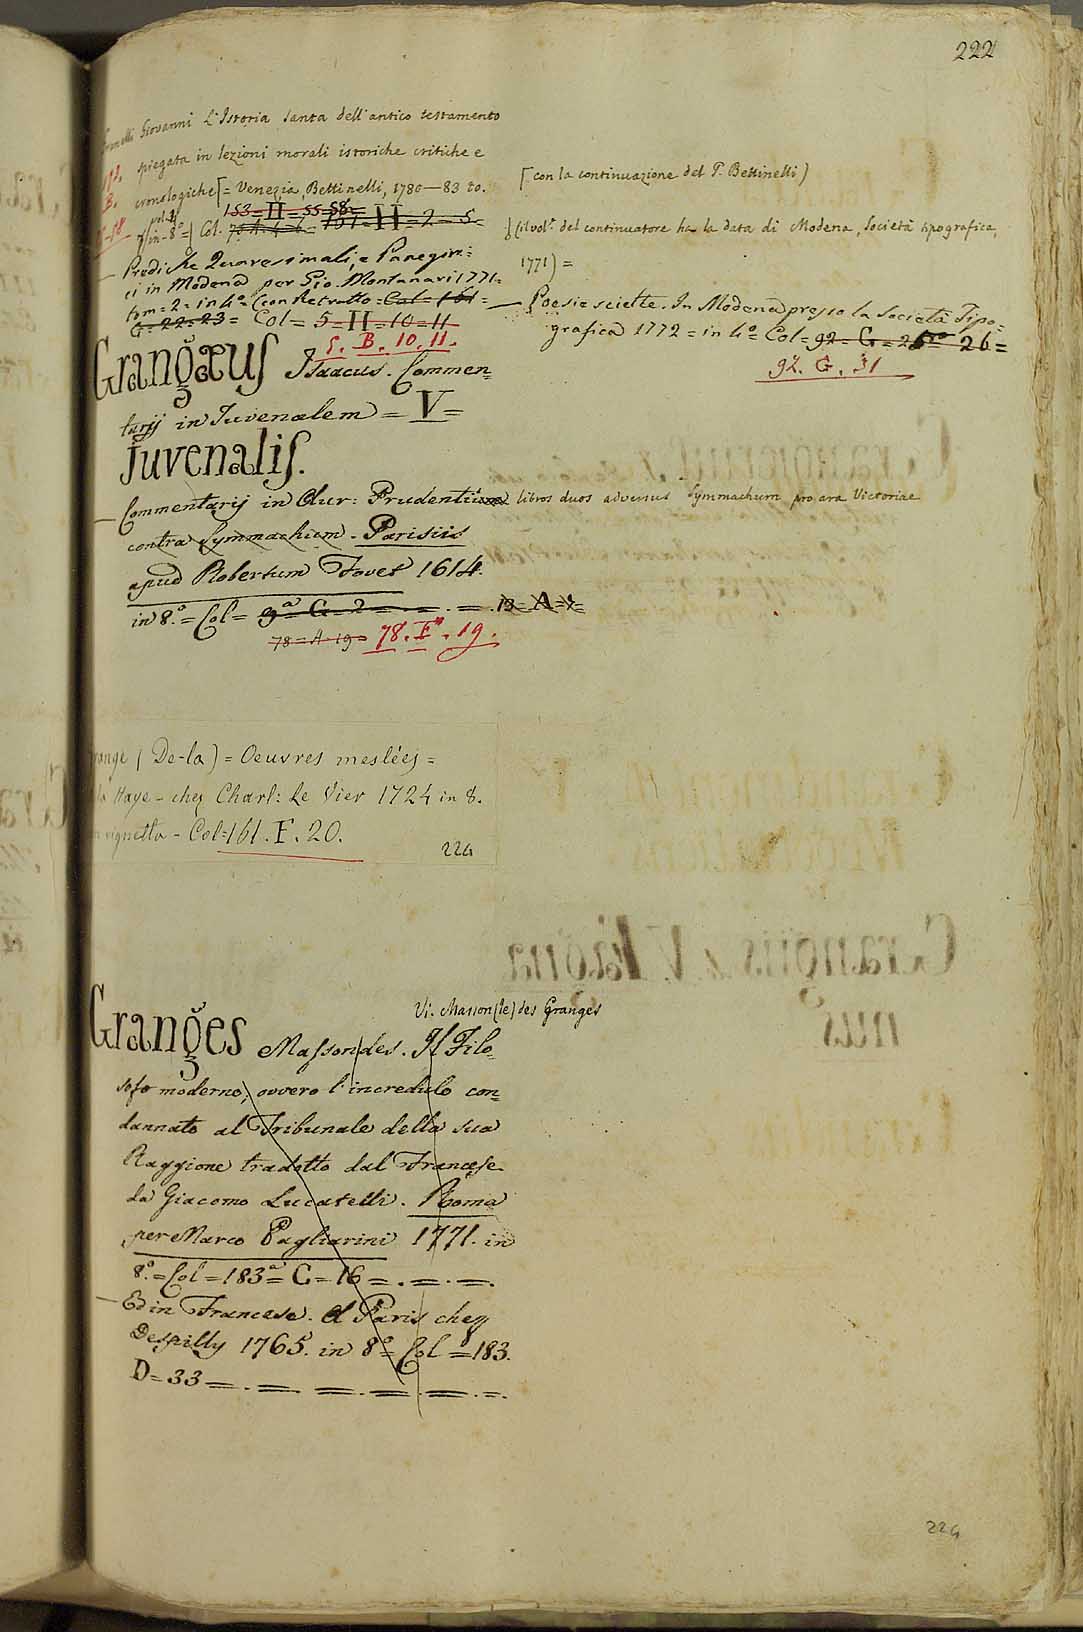 222
Granelli Giovanni L'Istoria santa dell'antico testamento
spiegata in lezioni morali istoriche critiche e
cronologiche [= Venezia, Bettinelli, 1780-83 to.
[con la continuazione del P. Bettinelli)
153=H=55-58=
in-8°=) Col.
)(il vol°. del continuatore ha la data di Modena, Società tipografica,
1771) =
— Prediche Quaresimali, e Panegiri=
ci in Modena per Gio. Montanari 1771=
tom=2= in 4°= (con Retratto= Col= 161=
G=22=23= Col= 5=H=10=11
5. B. 10. 11.
— Poesie scielte. In Modena presso la Società Tipo=
grafica 1772= in 4°= Col= 92= G= 26=
92. G. 31
Grangæus Isaacus. Commen=
tarij in Juvenalem = V=
Juvenalis.
— Commentarij in Aur: Prudentii libros duos adversus Symmachum pro ara Victoriae
contra Symmachum. Parisiis
apud Robertum Fovet 1614.
in 8.° = Col= 9ª= G=2= = . = . 19= A=
78=A=19= 78. F. 19.
range (De-la) = Oeuvres meslées =
la Haye - chez Charl: le Vier 1724 in 8.
vignetta - Col=161. F. 20.
224
Vi. Masson (le) des Granges
Granges Masson des. Il Filo=
sofo moderno, ovvero l'incredulo con=
dannato al Tribunale della sua
Raggione tradotto dal Francese
da Giacomo Lucatelli. Roma
per Marco Pagliarini 1771. in
8.°= Col=183ª= C=16=.=.=.
— Ed in Francese. A Paris chez
Despilly 1765. in 8°= Col=183.
D=33=.=.=.=.=.
224